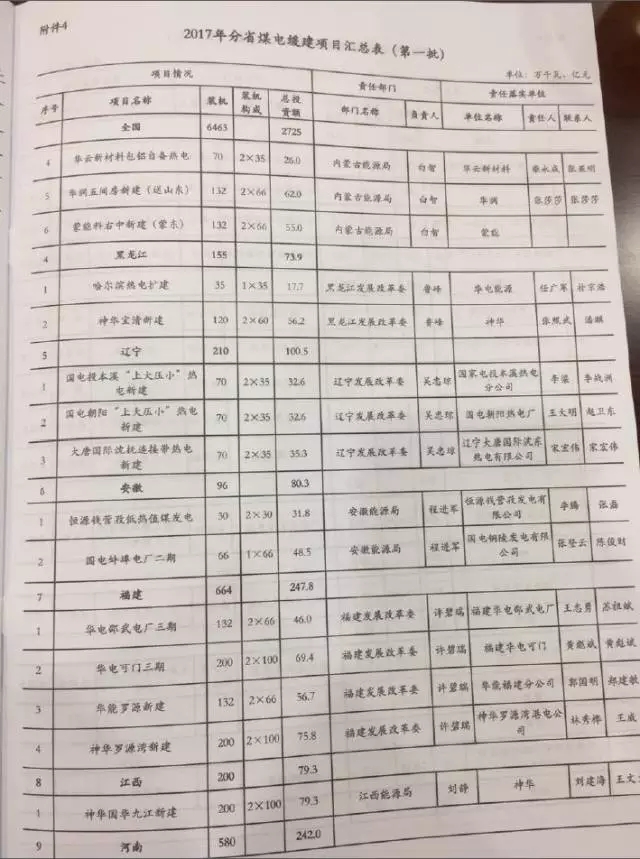 附件4
2017年分省煤电缓建项目汇总表（第一批）
单位：万千瓦、亿元
项目情况 责任部门 责任落实单位
序号 项目名称 装机 装机构成 总投资额 部门名称 负责人 单位名称 责任人 联系人
全国 6463 2725
4 华云新材料包铝自备热电 70 2×35 26.0 内蒙古能源局 白智 华云新材料 张亚明
5 华润五间房新建（送山东） 132 2×66 62.0 内蒙古能源局 白智 华润 张莎莎 张莎莎
6 蒙能科右中新建（蒙东） 132 2×66 55.0 内蒙古能源局 白智 蒙能
4 黑龙江 155 73.9
1 哈尔滨热电扩建 35 1×35 17.7 黑龙江发展改革委 鲁峰 华电能源 任广军 朴京浩
2 神华宝清新建 120 2×60 56.2 黑龙江发展改革委 鲁峰 神华 张熙武 潘麒
5 辽宁 210 100.5
1 国电投本溪“上大压小”热电新建 70 2×35 32.6 辽宁发展改革委 吴忠琼 国家电投本溪热电分公司 李梁 李战洲
2 国电朝阳“上大压小”热电新建 70 2×35 32.6 辽宁发展改革委 吴忠琼 国电朝阳热电厂 王大明 赵卫东
3 大唐国际沈抚连接带热电新建 70 2×35 35.3 辽宁发展改革委 吴忠琼 辽宁大唐国际沈东热电有限公司 宋宏伟 宋宏伟
6 安徽 96 80.3
1 恒源钱营孜低热值煤发电 30 2×30 31.8 安徽能源局 程进军 恒源钱营孜发电有限公司 张磊
2 国电蚌埠电厂二期 66 1×66 48.5 安徽能源局 程进军 国电铜陵发电有限公司 张登云 陈俊财
7 福建 664 247.8
1 华电邵武电厂三期 132 2×66 46.0 福建发展改革委 许碧瑞 福建华电邵武电厂 王志勇 苏祖斌
2 华电可门三期 200 2×100 69.4 福建发展改革委 许碧瑞 福建华电可门 黄彪斌 黄彪斌
3 华能罗源新建 132 2×66 56.7 福建发展改革委 许碧瑞 华能福建分公司 郭国明 郑建敏
4 神华罗源湾新建 200 2×100 75.8 福建发展改革委 许碧瑞 神华罗源湾港电公司 林秀榫 王威
8 江西 200 79.3
1 神华国华九江新建 200 2×100 79.3 江西能源局 刘静 神华 刘建海 王文
9 河南 580 242.0